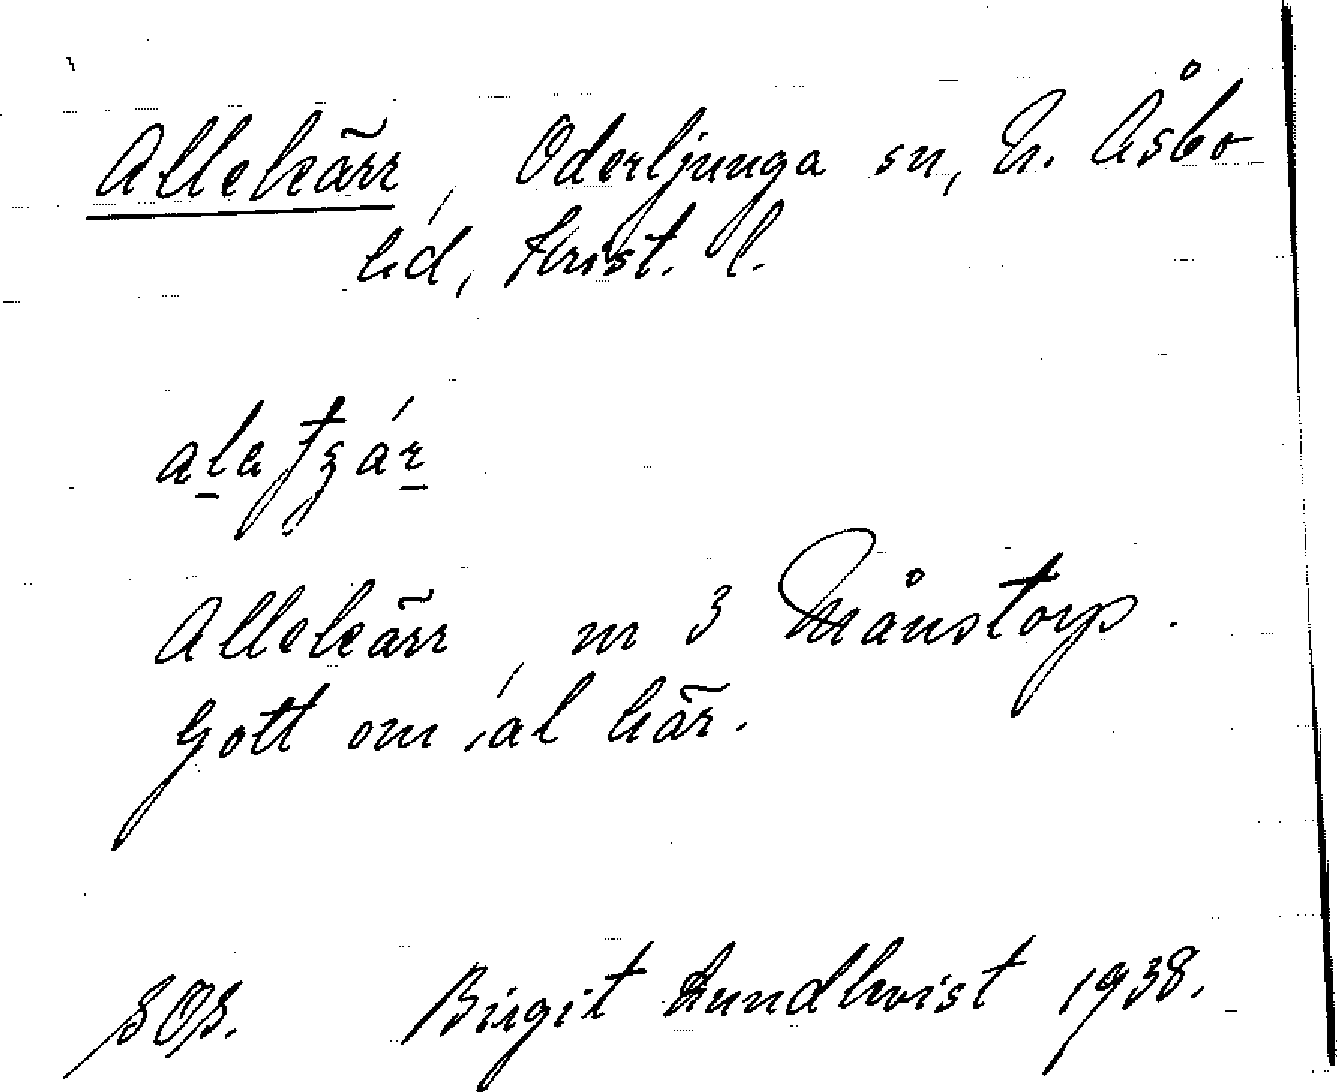 Allekärr, Oderljunga sn, N. Åsbo
hd, Krist. l.
Allekärr, nr 3 Månstorp.
Gott om al här.
SOS. Birgit Lundkvist 1938.